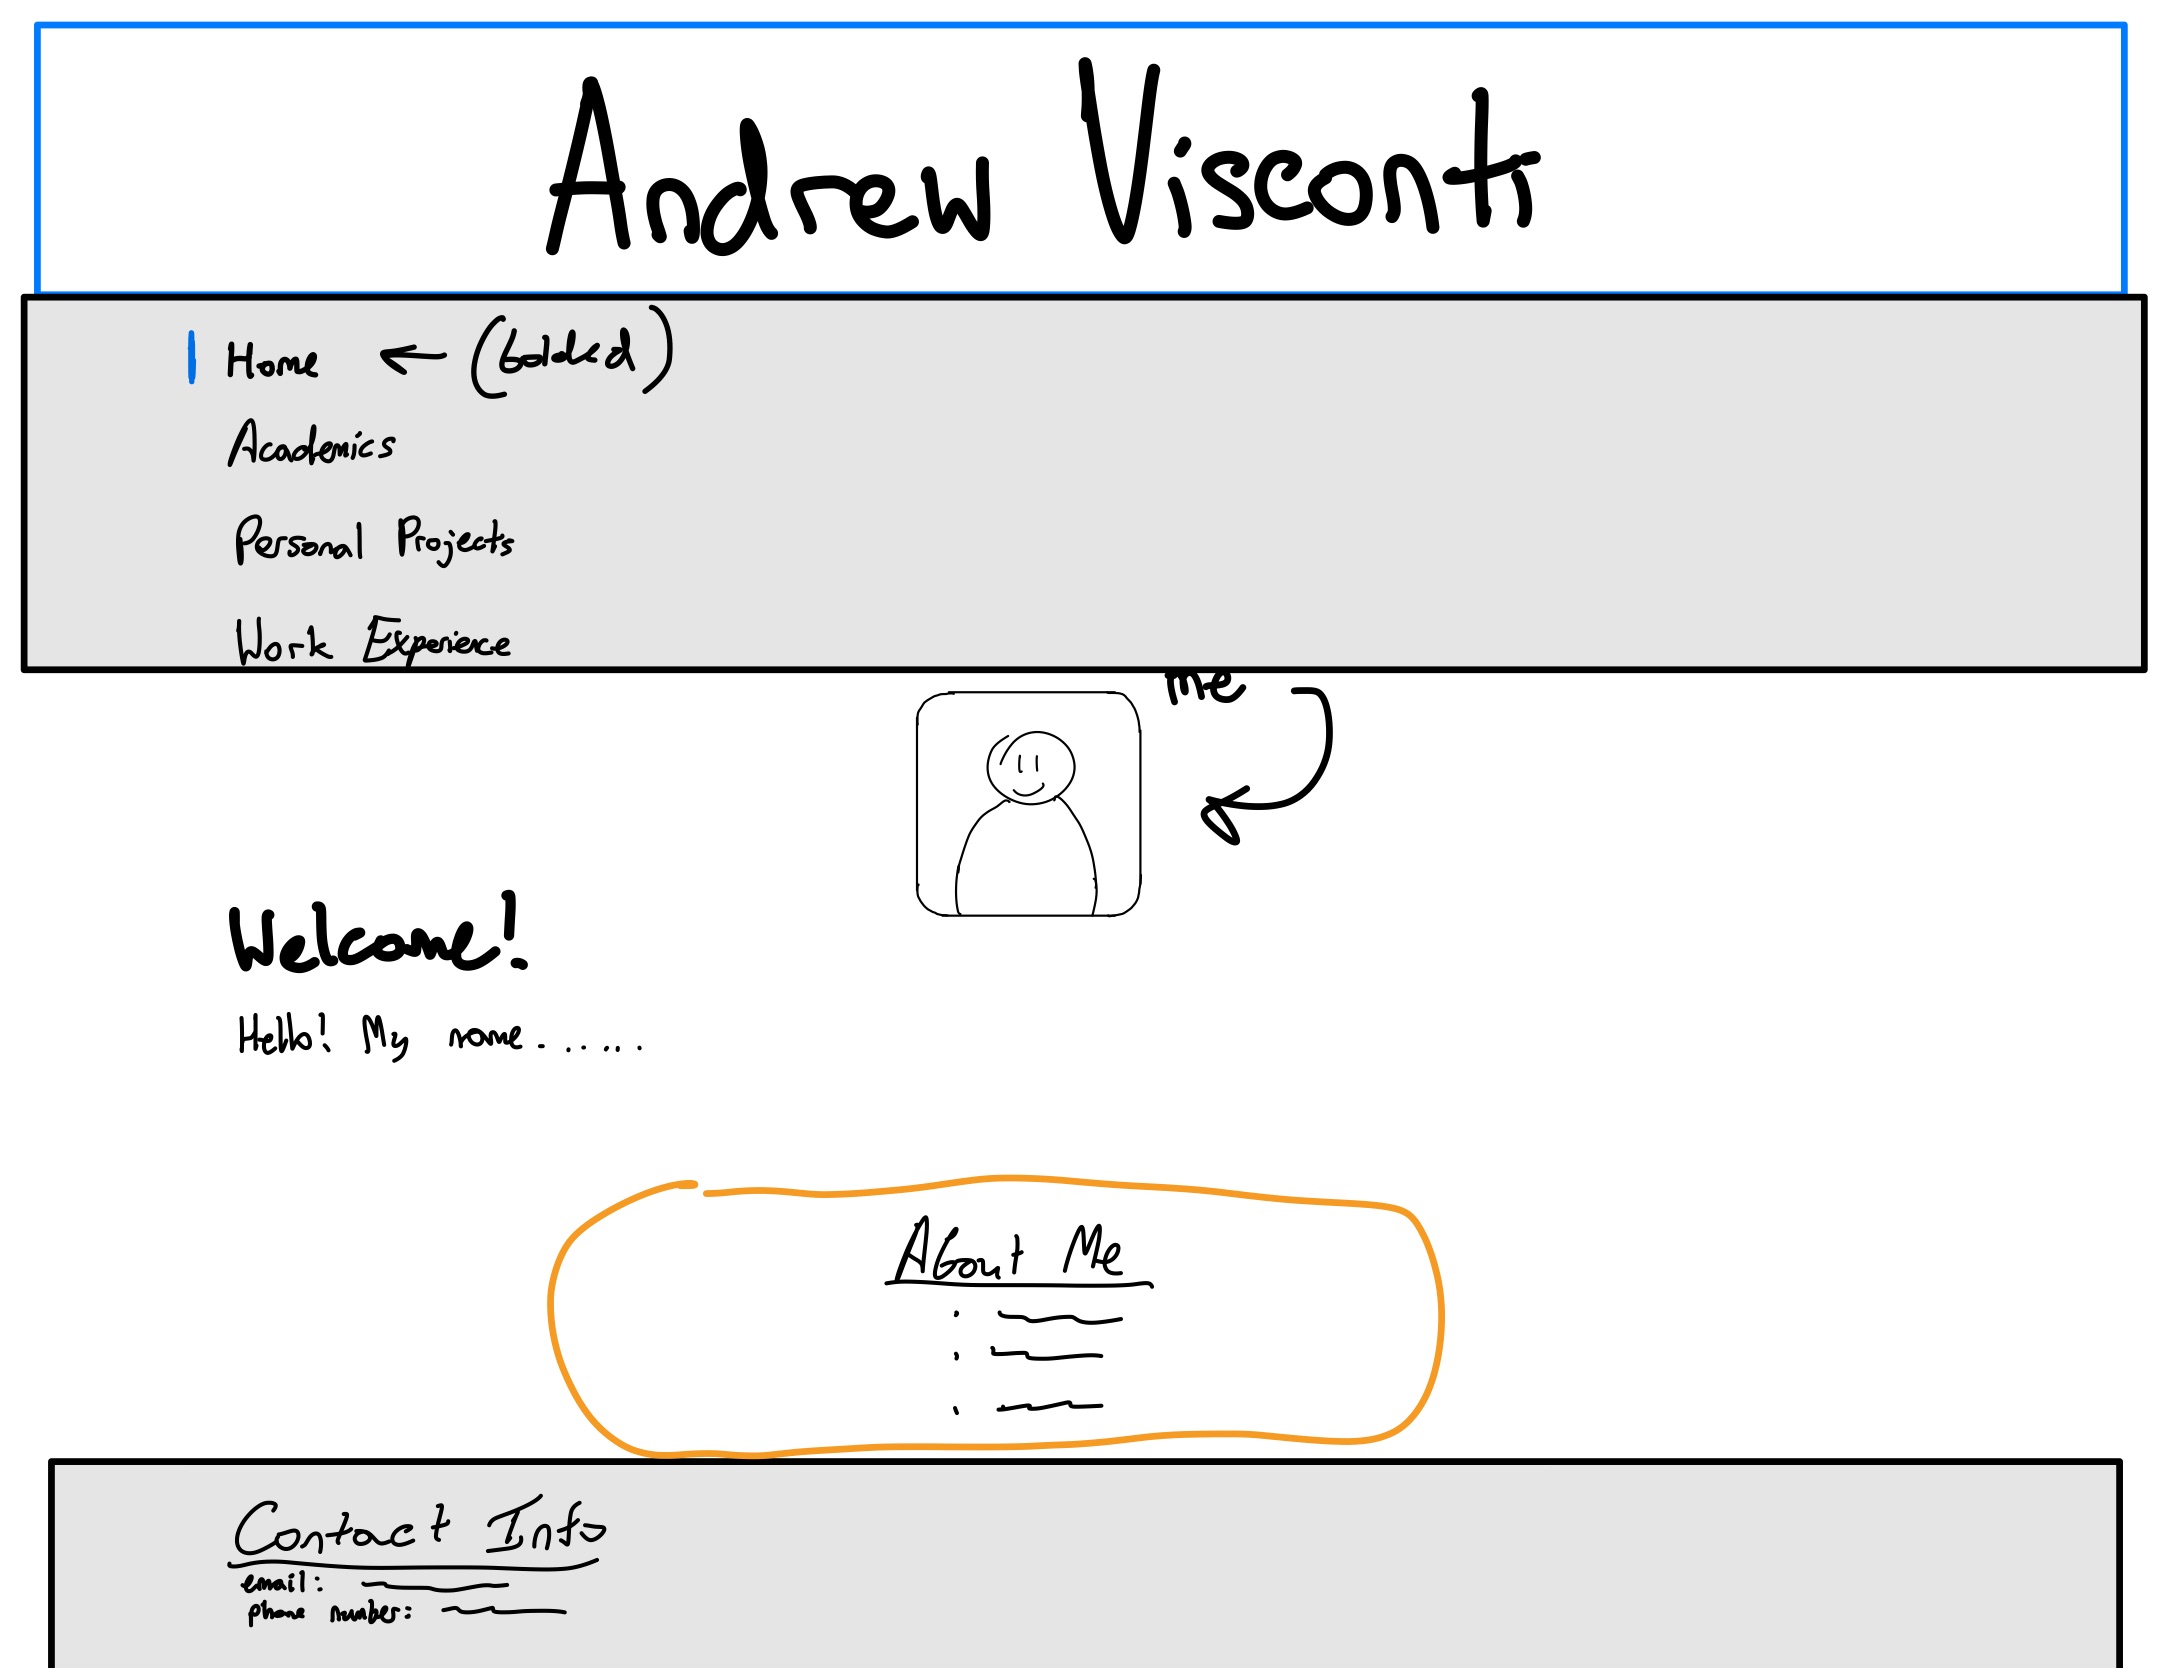 Andrew Visconti
Home ← (bolded)
Academics
Personal Projects
Work Experience
me
Welcome!
Hello! My name.......
About Me
Contact Info
email:
phone number: